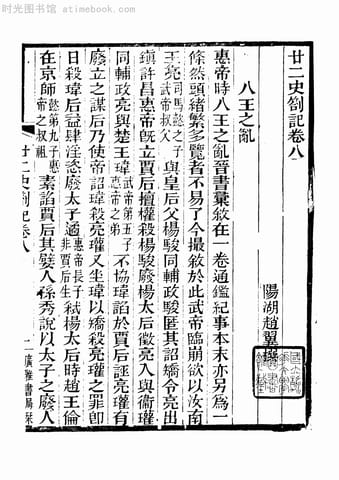 时光图书馆 atimebook.com
廿二史劄記卷八
陽湖趙翼撰
八王之亂
惠帝時八王之亂晉書彙敘在一卷通鑑紀事本末亦另為一
條然頭緒繁多覽者不易了今最敘於此武帝臨崩欲以汝南
王亮司馬懿之子武帝叔父與皇后父楊駿同輔政駿匿其詔矯令亮出
鎮許昌惠帝旣立賈后擅權殺楊駿廢楊太后徵亮入與衛瓘
同輔政亮與楚王瑋武帝第五子惠帝之弟不協瑋諂於賈后誣亮瓘有
廢立之謀后乃使帝詔瑋殺亮瓘又坐瑋以矯殺亮瓘之罪卽
日殺瑋后益肆淫恣廢太子遹惠帝長子非賈后生弒楊太后時趙王倫
在京師懿第九子惠帝之叔祖素諂賈后其嬖人孫秀說以太子之廢人
廿二史劄記卷八
廣雅書局栞